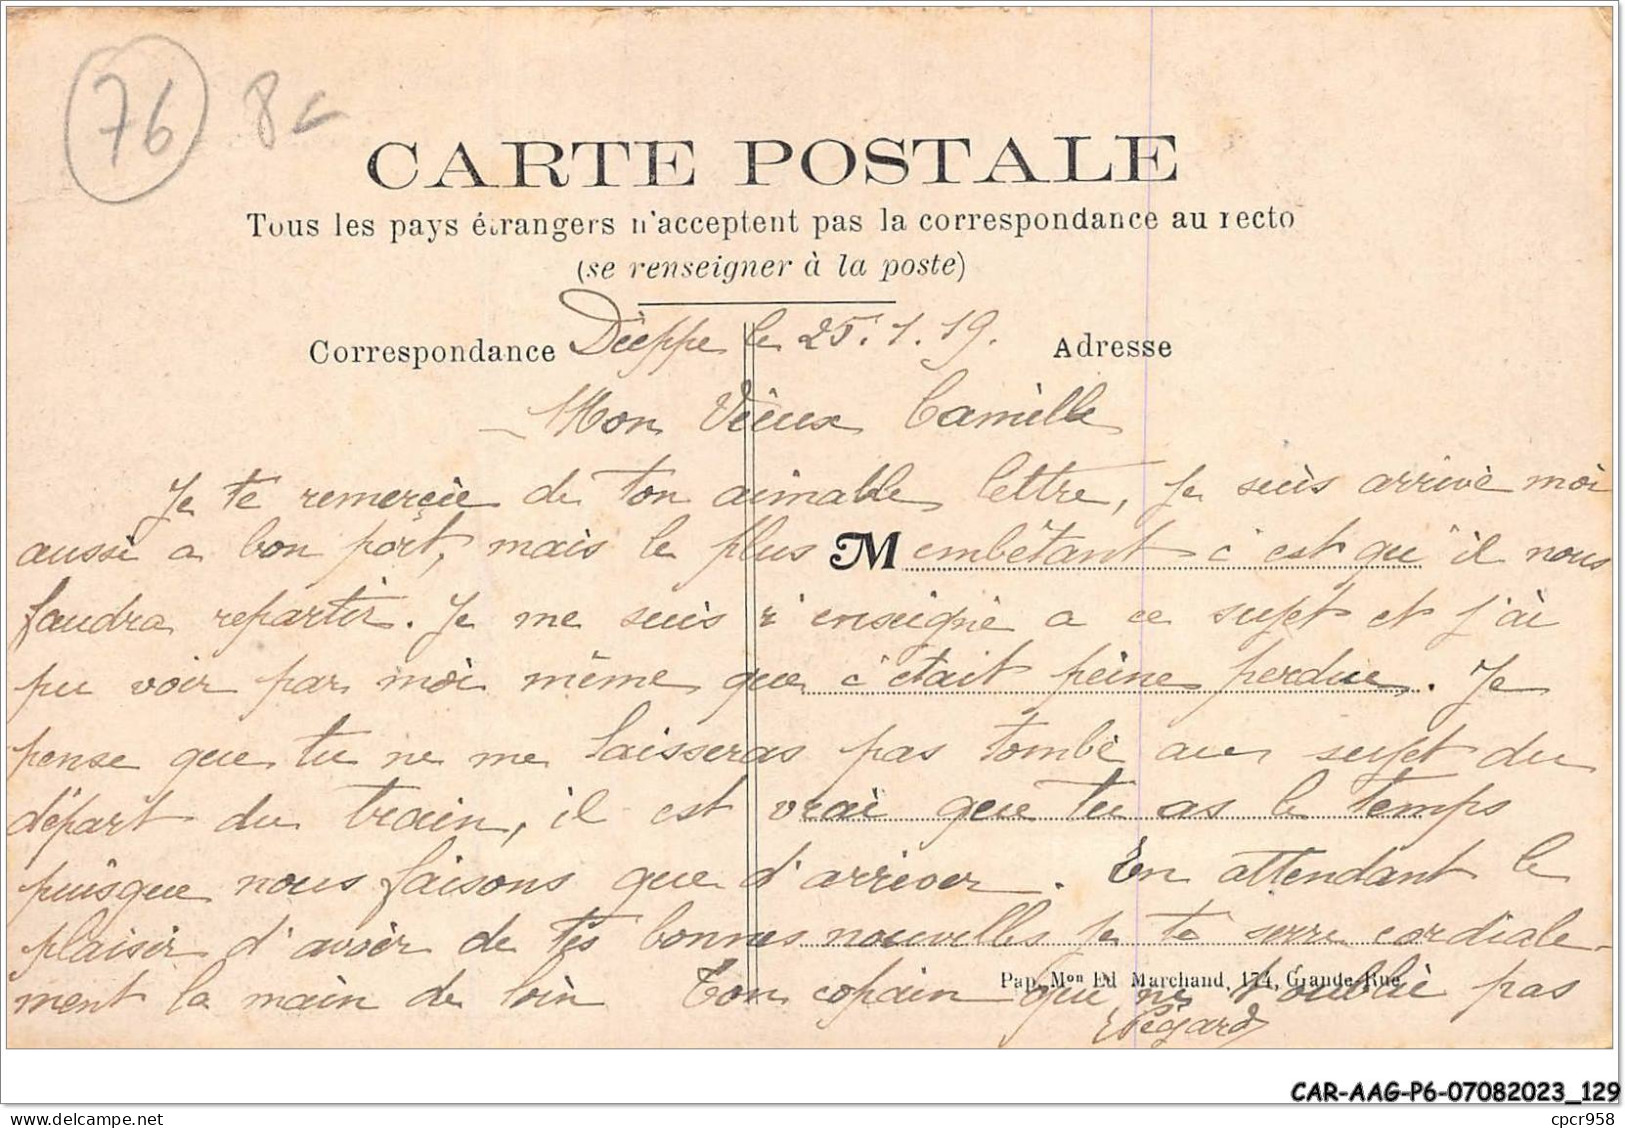 76 8
CARTE POSTALE
Tous les pays étrangers n'acceptent pas la correspondance au recto
(se renseigner à la poste)
Correspondance Dieppe le 25.1.19. Adresse
Mon Vieux Camille
Je te remercie de ton aimable lettre, je suis arrivé moi
aussi a bon port, mais le plus M embêtant c'est qu'il nous
faudra repartir. Je me suis r'enseigné a ce sujet et j'ai
pu voir par moi même que c'était peine perdue. Je
pense que tu ne me laisseras pas tombé au sujet du
départ du train, il est vrai que tu as le temps
puisque nous faisons que d'arriver. En attendant le
plaisir d'avoir de tes bonnes nouvelles je te serre cordiale-
ment la main de loin Ton copain qui ne t'oublie pas
Pap. Mon Ed Marchand, 174, Grande-Rue
CAR-AAG-P6-07082023_129
cpcr958